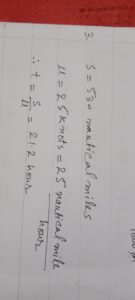 3. S = 530 nautical miles
u = 25 knots = 25 nautical mile
hour
∴ t = S/u = 21.2 hour